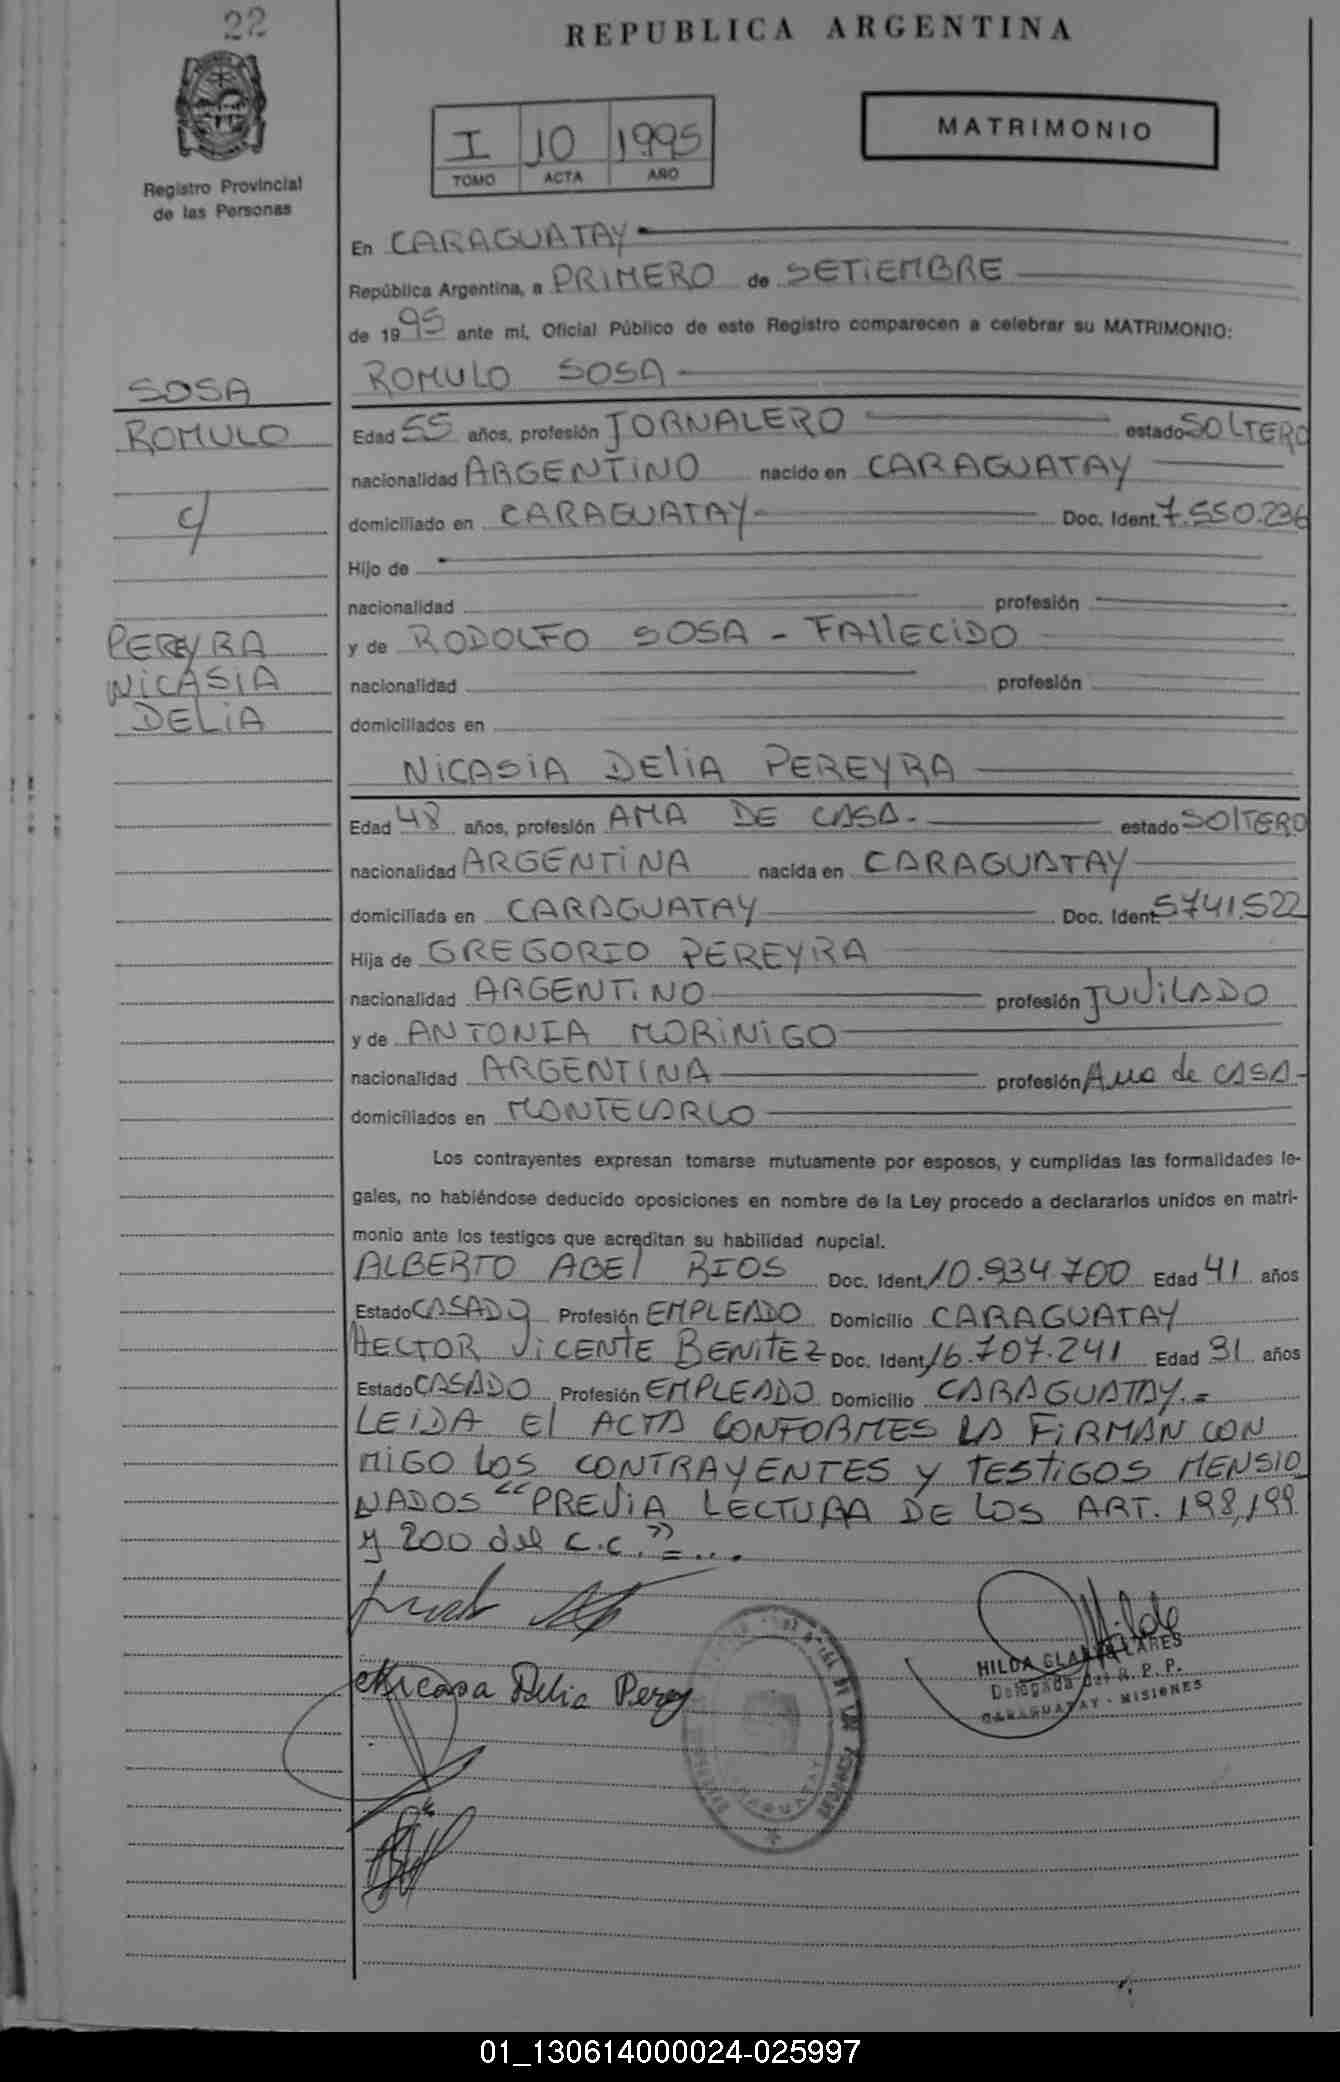 22
REPUBLICA ARGENTINA
Registro Provincial
de las Personas
I 10 1995
TOMO ACTA AÑO
MATRIMONIO
SOSA
ROMULO
c/
PEREYRA
NICASIA
DELIA
En CARAGUATAY
República Argentina, a PRIMERO de SETIEMBRE
de 1995 ante mí, Oficial Público de este Registro comparecen a celebrar su MATRIMONIO:
ROMULO SOSA
Edad 55 años, profesión JORNALERO estado SOLTERO
nacionalidad ARGENTINO nacido en CARAGUATAY
domiciliado en CARAGUATAY Doc. Ident. 7.550.236
Hijo de
nacionalidad profesión
y de RODOLFO SOSA - FALLECIDO
nacionalidad profesión
domiciliados en
NICASIA DELIA PEREYRA
Edad 48 años, profesión AMA DE CASA. estado SOLTERO
nacionalidad ARGENTINA nacida en CARAGUATAY
domiciliada en CARAGUATAY Doc. Ident. 5741.522
Hija de GREGORIO PEREYRA
nacionalidad ARGENTINO profesión JUVILADO
y de ANTONIA MORINIGO
nacionalidad ARGENTINA profesión Ama de CASA
domiciliados en MONTECARLO
Los contrayentes expresan tomarse mutuamente por esposos, y cumplidas las formalidades le-
gales, no habiéndose deducido oposiciones en nombre de la Ley procedo a declararlos unidos en matri-
monio ante los testigos que acreditan su habilidad nupcial.
ALBERTO ABEL RIOS Doc. Ident. 10.934.700 Edad 41 años
Estado CASADO Profesión EMPLEADO Domicilio CARAGUATAY
HECTOR VICENTE BENITEZ Doc. Ident. 16.707.241 Edad 31 años
Estado CASADO Profesión EMPLEADO Domicilio CARAGUATAY.=
LEIDA El ACTA CONFORMES LA FIRMAN CON
MIGO LOS CONTRAYENTES Y TESTIGOS MENSIO
NADOS "PREVIA LECTURA DE LOS ART. 198, 199
y 200 del C.C."=...
Nicasa Delia Perey
Hilda
HILDA
Delegada del R. P. P.
CARAGUATAY - MISIONES
01_130614000024-025997